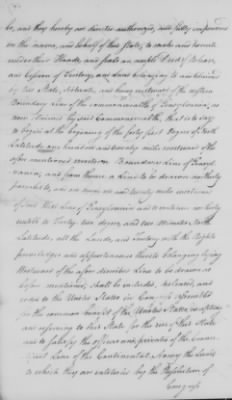 be, and they hereby are directed authorized, and fully impowered
in the name, and behalf of this State, to make and execute
under their Hands and Seals an ample Deed of
and Cession of Territory and Lands belonging to and claimed
by this State, situate and being westward of the western
Boundary Line of the commonwealth of Pennsylvania, as
now claimed by said Commonwealth, that is to say
to begin at the beginning of the forty first degree of North
Latitude, one hundred and twenty miles westward of the
afore mentioned western Boundary Line of Pennsyl
vania, and from thence a Line to be drawn northerly
parallel to, and one hundred and twenty miles westward
of said West Line of Pennsylvania and to continue northerly
until to Forty two degrees and two Minutes North
Latitude, all the Lands, and Territory with the Rights
priviledges and appurtenances thereto belonging lying
Westward of the afore described Line to be drawn as
before mentioned, shall be
ceded to the United States in Congress assembled
for the common benefit of the United States, excepting
and reserving to this State for the use of this State
and to satisfy the officers and privates of the Connec
ticut Line of the Continental Army the Lands
to which they are entitled by the Resolution of
Congress